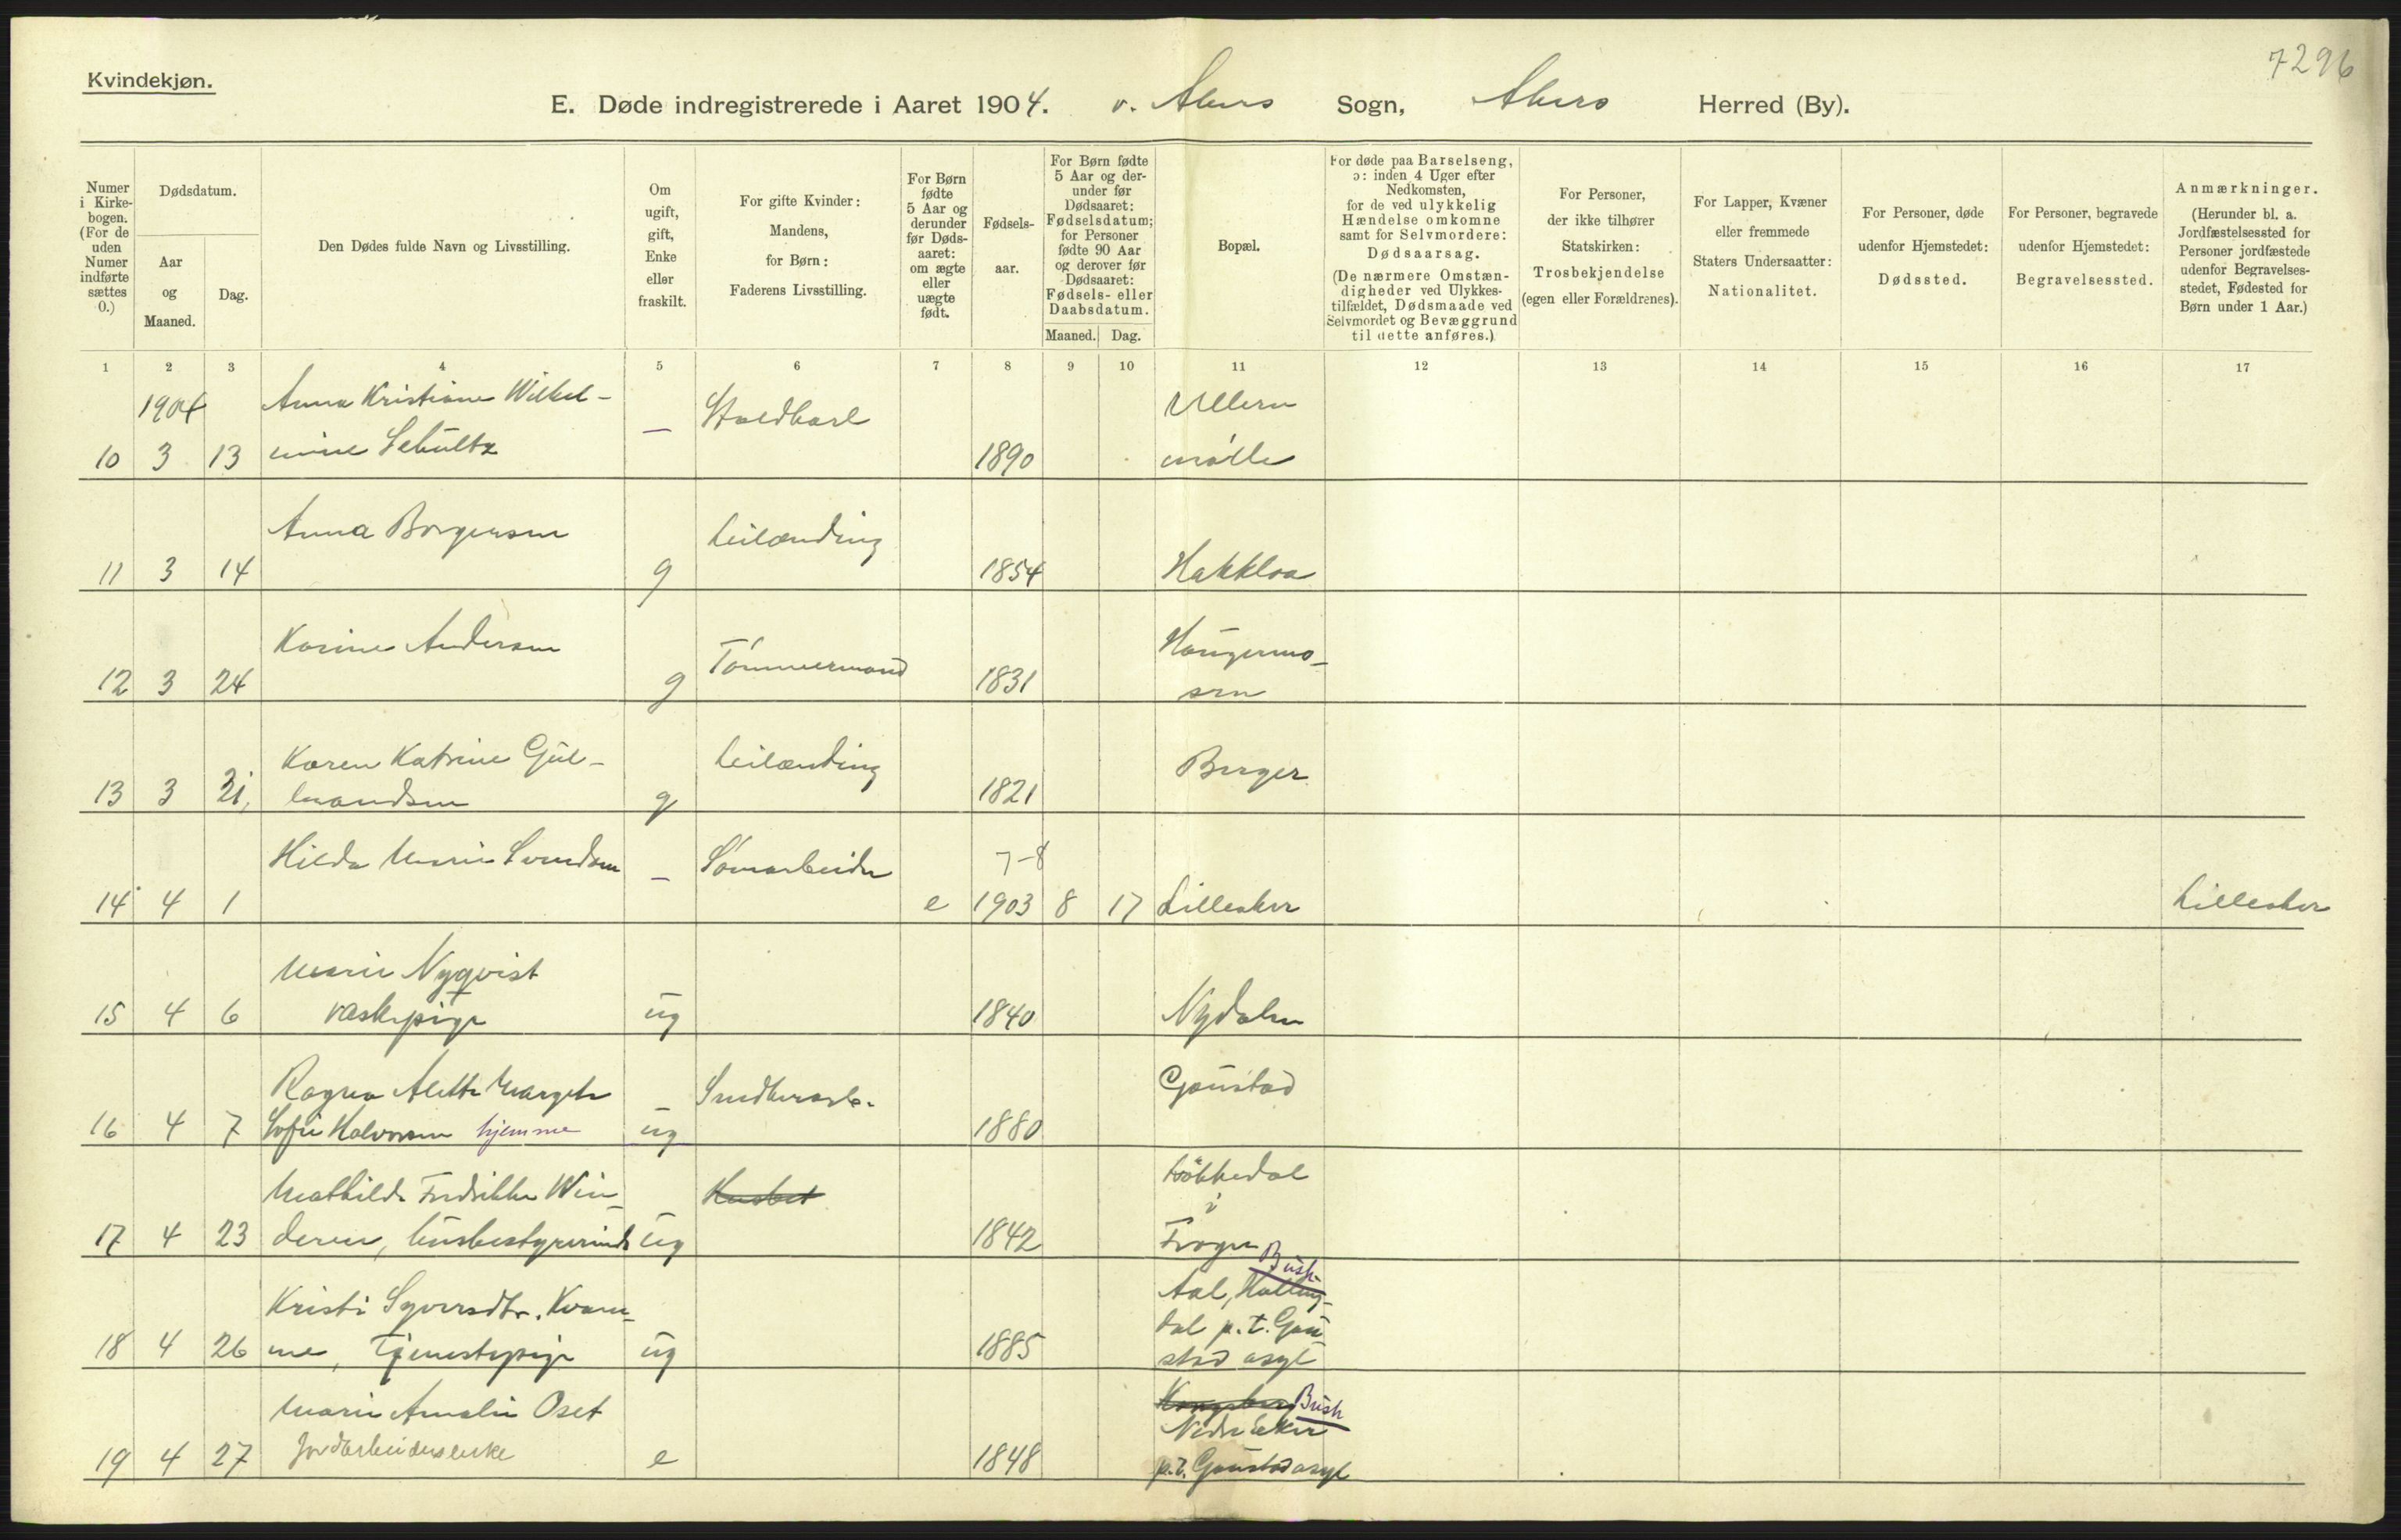 7296
Kvindekjøn.
E. Døde indregistrerede i Aaret 1904. v. Akers Sogn, Akers Herred (By).
Numer i Kirke-bogen. (For de uden Numer indførte sættes 0.)
Dødsdatum.
Aar og Maaned.
Dag.
Den Dødes fulde Navn og Livsstilling.
Om ugift, gift, Enke eller fraskilt.
For gifte Kvinder: Mandens, for Børn: Faderens Livsstilling.
For Børn fødte 5 Aar og derunder før Døds-aaret: om ægte eller uægte født.
Fødsels-aar.
For Børn fødte 5 Aar og der-under før Dødsaaret: Fødselsdatum; for Personer fødte 90 Aar og derover før Dødsaaret: Fødsels- eller Daabsdatum.
Maaned. Dag.
Bopæl.
For døde paa Barselseng, ɔ: inden 4 Uger efter Nedkomsten, for de ved ulykkelig Hændelse omkomne samt for Selvmordere: Dødsaarsag. (De nærmere Omstæn-digheder ved Ulykkes-tilfældet, Dødsmaade ved Selvmordet og Bevæggrund til dette anføres.)
For Personer, der ikke tilhører Statskirken: Trosbekjendelse (egen eller Forældrenes).
For Lapper, Kvæner eller fremmede Staters Undersaatter: Nationalitet.
For Personer, døde udenfor Hjemstedet: Dødssted.
For Personer, begravede udenfor Hjemstedet: Begravelsessted.
Anmærkninger. (Herunder bl. a. Jordfæstelsessted for Personer jordfæstede udenfor Begravelses-stedet, Fødested for Børn under 1 Aar.)
1 2 3 4 5 6 7 8 9 10 11 12 13 14 15 16 17
1904 Anna Kristiane Wilhel- — Staldkarl Ullern
10 3 13 mine Schultz 1890 mølle
Anna Borgersen Leilænding
11 3 14 g 1854 Hakkloa
Karine Andersen Tømmermand Haugermo-
12 3 24 g 1831 sen
Karen Katrine Gul- Leilænding Berger
13 3 21, brandsen g 1821
Hilda Marie Svendsen — Sömarbeider 7-8
14 4 1 e 1903 8 17 Lilleaker Lilleaker
Marie Nyqvist
15 4 6 vaskepige ug 1840 Nydalen
Ragna Alette Margete — Smedarb. Gaustad
16 4 7 Sofie Halvorsen hjemme ug 1880
Mathilde Fredrikke Win- Husbst Løkkedal i
17 4 23 deren, husbestyrerinde ug 1842 Frogn
Kristi Syversdtr. Kvam- Aal, Halling- Busk
dal p. t. Gau-
18 4 26 me, Tjenestepige ug 1885 stad asyl
Marie Amalie Oset Kongsberg Busk
Jordarbeiderenke Nedre Eker
19 4 27 e 1848 p.t. Gaustad asyl